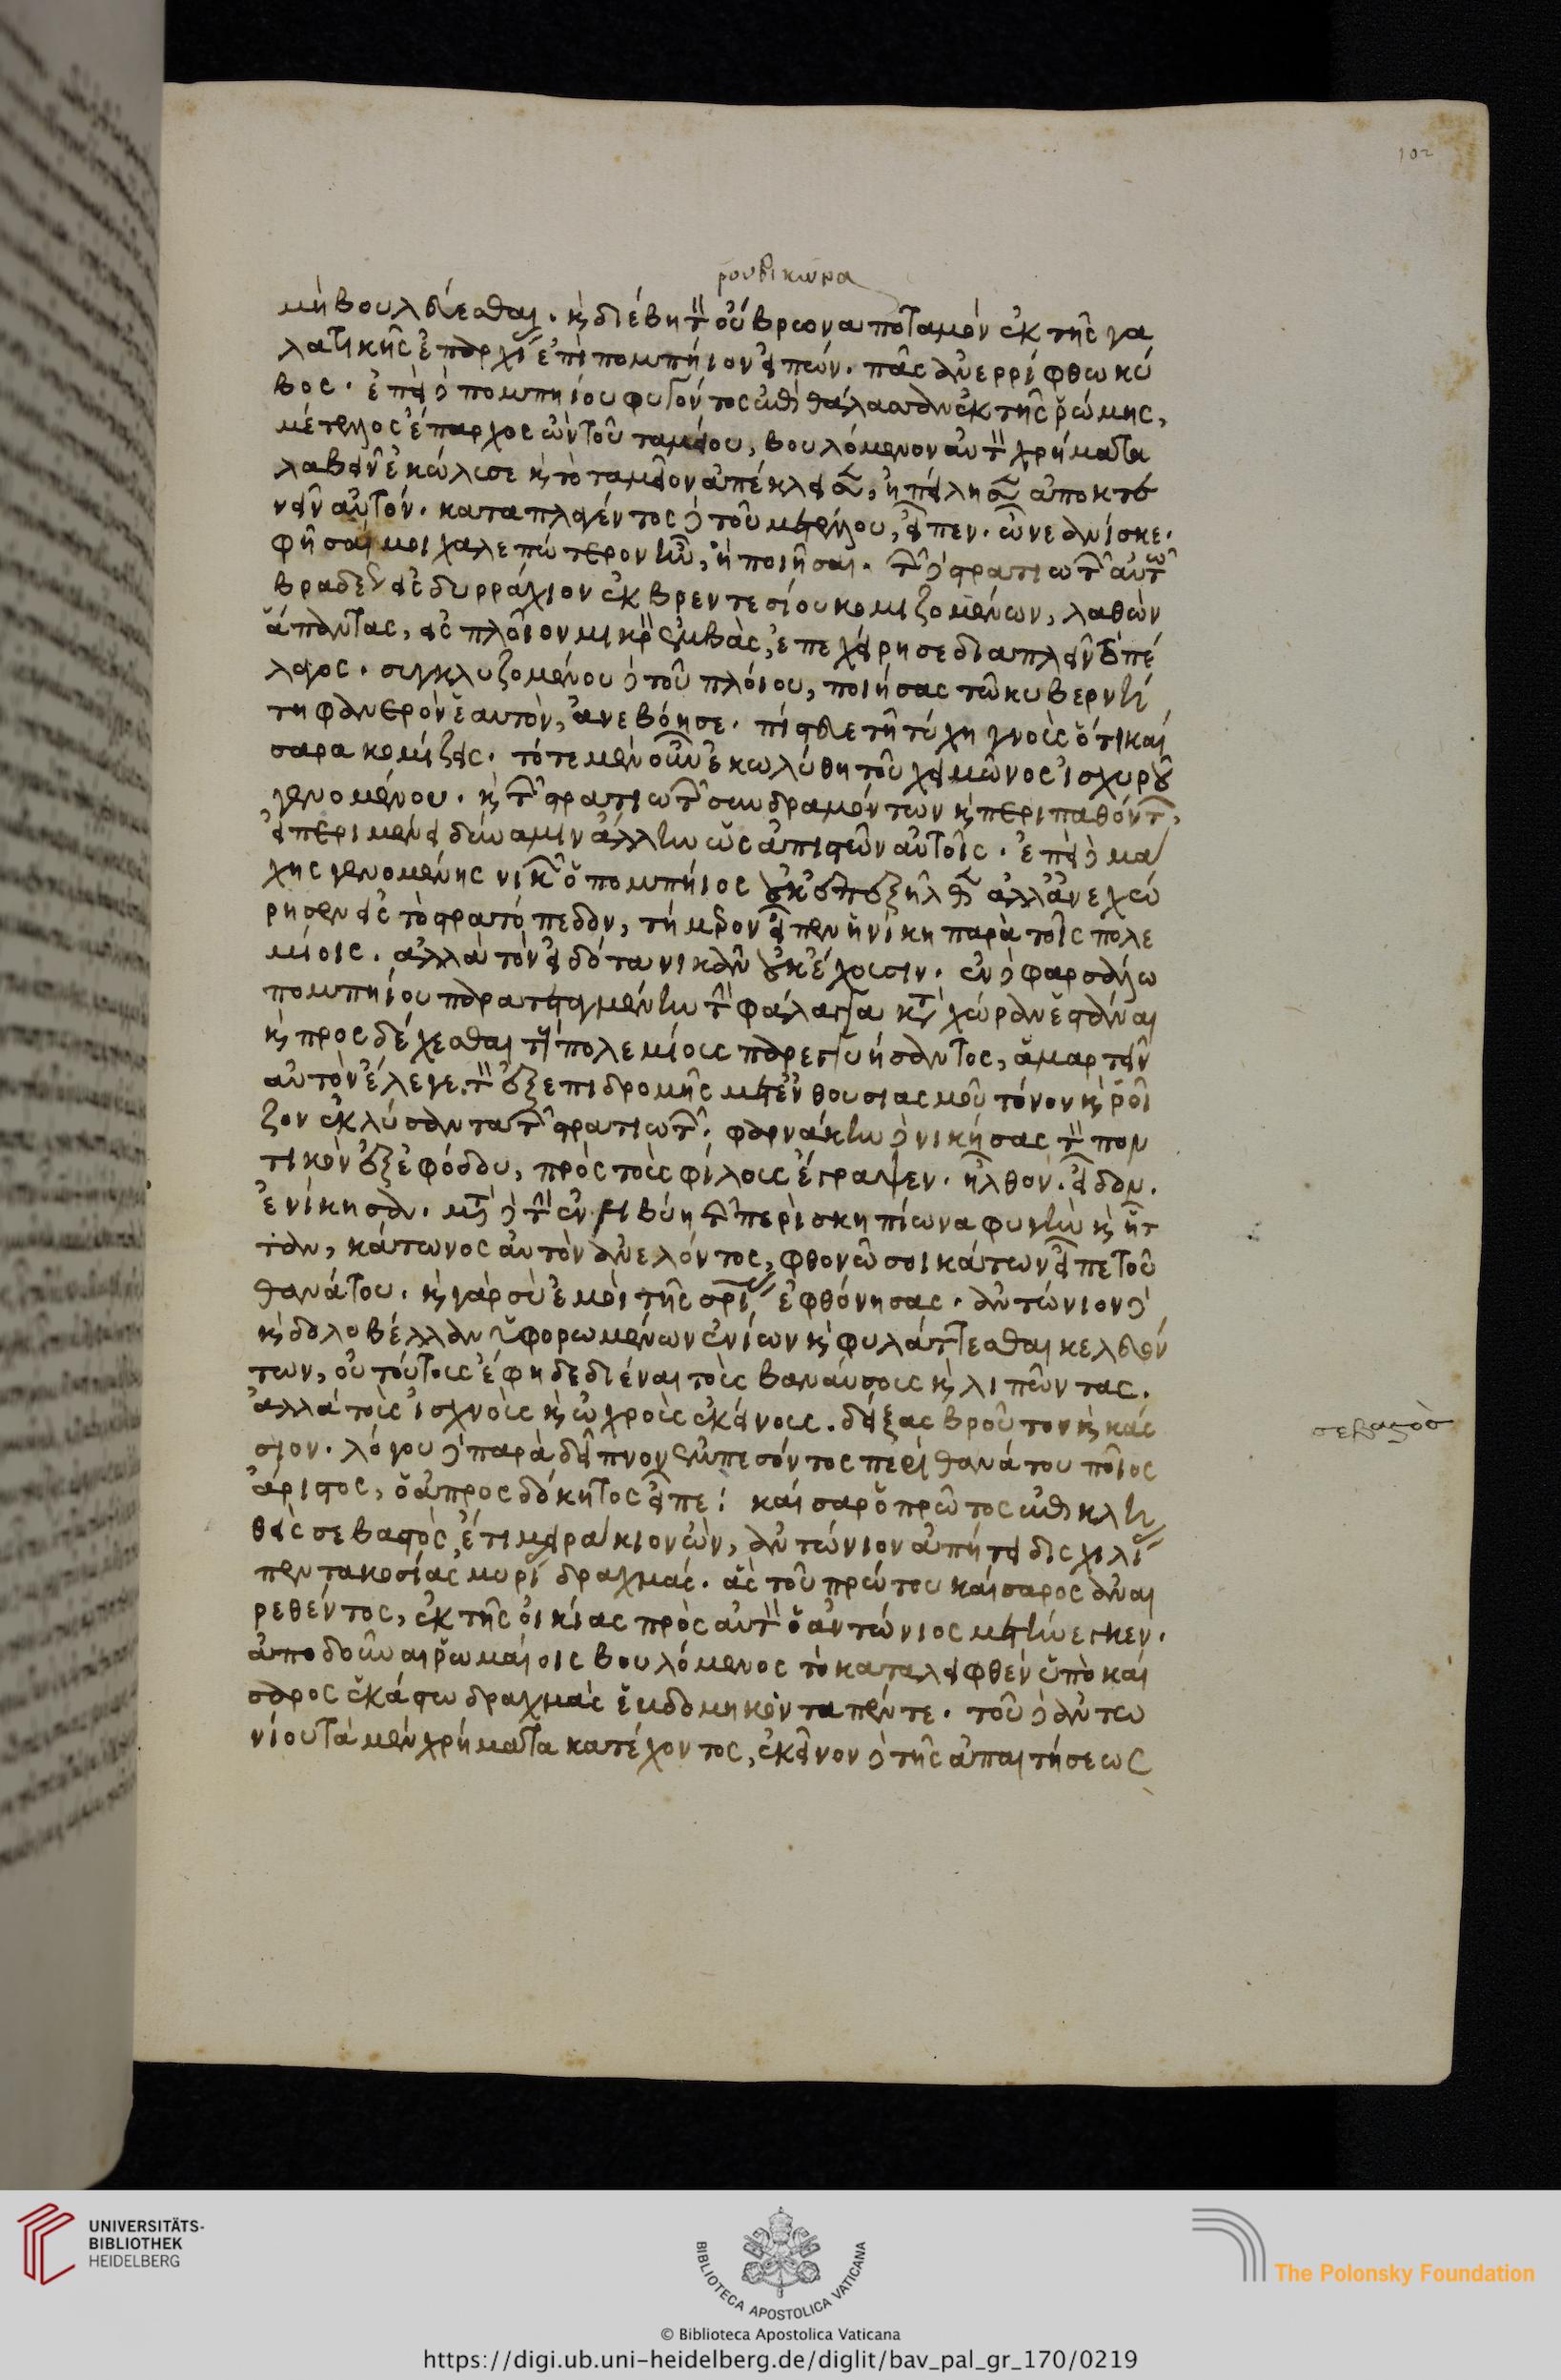 102
ρουβικωνα
μὴ βουλεύεσθαι. κ διέβη τ οὔβρεονα ποταμὸν ἐκ τῆς γα
λατικῆς ἐπαρχί ἐπὶ πομπήιον εἰπών. πᾶς ἀνερρίφθω κύ
βος. ἐπεὶ δ πομπηίου φυγόντος ἐπὶ θάλασσαν ἐκ τῆς ῥώμης,
μέτελλος ἔπαρχος ὢν τοῦ ταμείου, βουλόμενον αὐτ χρήματα
λαβεῖν ἐκώλυσε κ τὸ ταμεῖον ἀπέκλεισε, ἠπείλησε ἀποκτε
νεῖν αὐτόν. καταπλαγέντος δ τοῦ μετέλλου, εἶπεν. ὦ νεανίσκε.
φῆσαί μοι χαλεπώτερον ἦν, ἢ ποιῆσαι. τ δ στρατιωτ αὐτῶ
βραδε εἰς δυρράχιον ἐκ βρεντεσίου κομιζομένων, λαθὼν
ἅπαντας, εἰς πλοῖον μικρ ἐμβὰς, ἐπεχείρησε διαπλεῖν τὸ πέ
λαγος. συγκλυζομένου δ τοῦ πλοίου, ποιήσας τῶ κυβερνή
τη φανερὸν ἑαυτὸν, ἀνεβόησε. πίστευε τῆ τύχη γνοὺς ὅτι καί
σαρα κομίζεις. τότε μὲν οὖν ἐκωλύθη τοῦ χειμῶνος ἰσχυροῦ
γενομένου. κ τ στρατιωτ συνδραμόντων κ περιπαθόντ,
εἰ περιμένει δύναμιν ἄλλην ὡς ἀπιστῶν αὐτοῖς. ἐπεὶ δ μά
χης γενομένης νικῶν ὁ πομπήιος οὐκ ἐπεξῆλθε ἀλλ' ἀνεχώ
ρησεν εἰς τὸ στρατόπεδον, τήμερον εἶπεν ἡ νίκη παρὰ τοῖς πολε
μίοις. ἀλλὰ τὸν εἰδότα νικᾶν οὐκ ἔχουσιν. ἐν δ φαρσάλω
πομπηίου παρατεταγμένην τ φάλαγγα κτ χώραν ἑστάναι
κ προσδέχεσθαι τ πολεμίους παρεγγυήσαντος, ἁμαρτεῖν
αὐτὸν ἔλεγε. τ ἐξ ἐπιδρομῆς μετ' ἐνθουσιασμοῦ τόνον κ ῥοῖ
ζον ἐκλύσαντα τ στρατιωτ. φαρνάκην δ νικήσας τ πον
τικὸν ἐξ ἐφόδου, πρὸς τοὺς φίλους ἔγραψεν. ἦλθον. εἶδον.
ἐνίκησαν. μτ δ τ ἐν λιβύη τ περὶ σκηπίωνα φυγὴν κ ἧτ
ταν, κάτωνος αὑτὸν ἀνελόντος, φθονῶ σοι κάτων εἶπε τοῦ
θανάτου. κ γὰρ σὺ ἐμοὶ τῆς σρι ἐφθόνησας. ἀντώνιον δ
κ δολοβέλλαν ὑφορωμένων ἐνίων κ φυλάττεσθαι κελευόν
των, οὐ τούτους ἔφη δεδιέναι τοὺς βαναύσους κ λιπῶντας.
ἀλλὰ τοὺς ἰσχνοὺς κ ὠχροὺς ἐκείνους. δείξας βροῦτον κ κάσ
σιον. λόγου δ παρὰ δεῖπνον ἐμπεσόντος περὶ θανάτου ποῖος
ἄριστος, ὁ ἀπροσδόκητος εἶπε: καῖσαρ ὁ πρῶτος ἐπικλη
θεὶς σεβαστὸς ἔτι μειράκιον ὢν, ἀντώνιον ἀπήτει δισχιλί
πεντακοσίας μυρί δραχμάς. ἃς τοῦ πρώτου καίσαρος ἀναι
ρεθέντος, ἐκ τῆς οἰκίας πρὸς αὑτ ὁ ἀντώνιος μετήνεγκεν.
ἀποδοῦναι ῥωμαίοις βουλόμενος τὸ καταλειφθὲν ὑπὸ καί
σαρος ἑκάστω δραχμὰς ἑβδομήκοντα πέντε. τοῦ δ ἀντω
νίου τὰ μὲν χρήματα κατέχοντος, ἐκεῖνον δ τῆς ἀπαιτήσεως
σεβαστὸσ
UNIVERSITÄTS-
BIBLIOTHEK
HEIDELBERG
BIBLIOTECA APOSTOLICA VATICANA
The Polonsky Foundation
© Biblioteca Apostolica Vaticana
https://digi.ub.uni-heidelberg.de/diglit/bav_pal_gr_170/0219